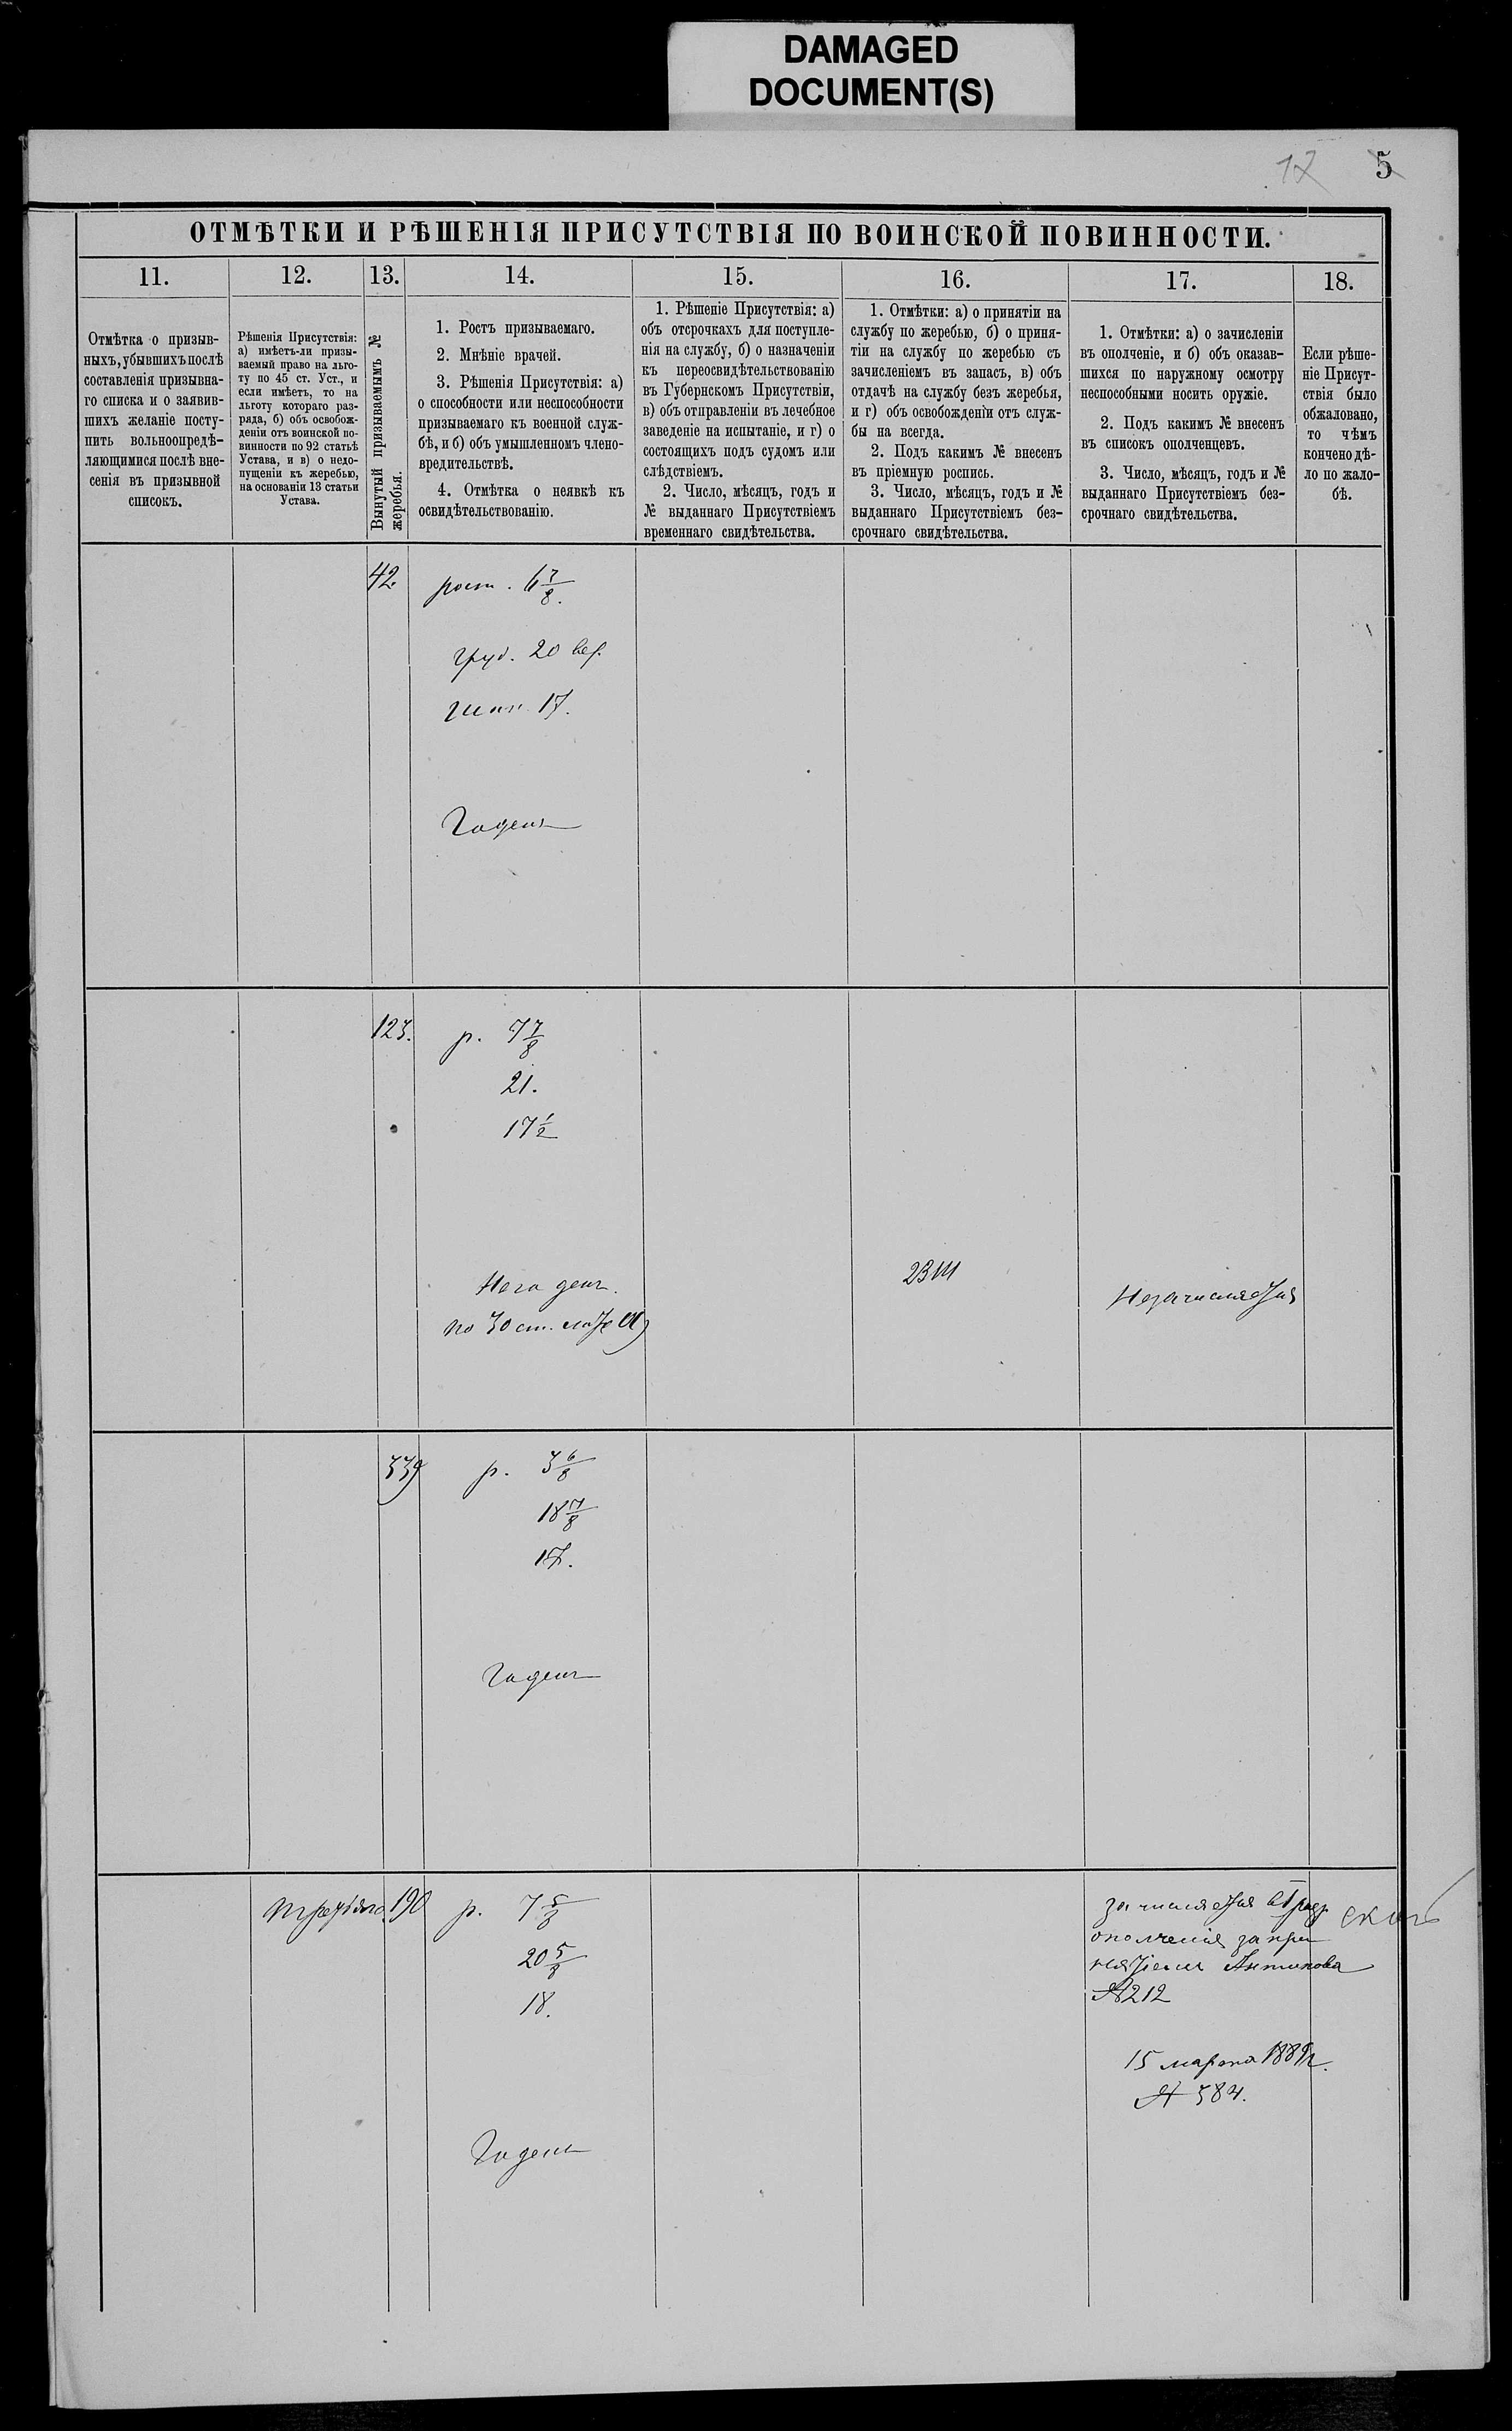 DAMAGED
DOCUMENT(S)
17 5
ОТМѢТКИ И РѢШЕНІЯ ПРИСУТСТВІЯ ПО ВОИНСКОЙ ПОВИННОСТИ.
11.
Отмѣтка о призыв-
ныхъ, убывшихъ послѣ
составленія призывна-
го списка и о заявив-
шихъ желаніе посту-
пить вольноопредѣ-
ляющимися послѣ вне-
сенія въ призывной
списокъ.
12.
Рѣшенія Присутствія:
а) имѣетъ-ли призы-
ваемый право на льго-
ту по 45 ст. Уст., и
если имѣетъ, то на
льготу котораго раз-
ряда, б) объ освобож-
деніи отъ воинской по-
винности по 92 статьѣ
Устава, и в) о недо-
пущеніи къ жеребью,
на основаніи 13 статьи
Устава.
13.
Вынутый призываемымъ №
жеребья.
14.
1. Ростъ призываемаго.
2. Мнѣніе врачей.
3. Рѣшенія Присутствія: а)
о способности или неспособности
призываемаго къ военной служ-
бѣ, и б) объ умышленномъ члено-
вредительствѣ.
4. Отмѣтка о неявкѣ къ
освидѣтельствованію.
15.
1. Рѣшеніе Присутствія: а)
объ отсрочкахъ для поступле-
нія на службу, б) о назначеніи
къ переосвидѣтельствованію
въ Губернскомъ Присутствіи,
в) объ отправленіи въ лечебное
заведеніе на испытаніе, и г) о
состоящихъ подъ судомъ или
слѣдствіемъ.
2. Число, мѣсяцъ, годъ и
№ выданнаго Присутствіемъ
временнаго свидѣтельства.
16.
1. Отмѣтки: а) о принятіи на
службу по жеребью, б) о приня-
тіи на службу по жеребью съ
зачисленіемъ въ запасъ, в) объ
отдачѣ на службу безъ жеребья,
и г) объ освобожденіи отъ служ-
бы на всегда.
2. Подъ какимъ № внесенъ
въ пріемную роспись.
3. Число, мѣсяцъ, годъ и №
выданнаго Присутствіемъ без-
срочнаго свидѣтельства.
17.
1. Отмѣтки: а) о зачисленіи
въ ополченіе, и б) объ оказав-
шихся по наружному осмотру
неспособными носить оружіе.
2. Подъ какимъ № внесенъ
въ списокъ ополченцевъ.
3. Число, мѣсяцъ, годъ и №
выданнаго Присутствіемъ без-
срочнаго свидѣтельства.
18.
Если рѣше-
ніе Присут-
ствія было
обжаловано,
то чѣмъ
кончено дѣ-
ло по жало-
бѣ.
42. рост. 6 7/8.
груд. 20 вер.
17.
Годенъ
123. р. 7 7/8
21.
17 1/2
Не годенъ.
по 30 ст.
Не зачисляется
339 р. 3 6/8
18 7/8
17.
Годенъ
третьяго 190 р. 7 5/8
20 5/8
18.
Годенъ
зачисляется въ I разр
ополченія за при
нятіемъ Антипова
№ 212
15 марта 1889 г.
№ 384.